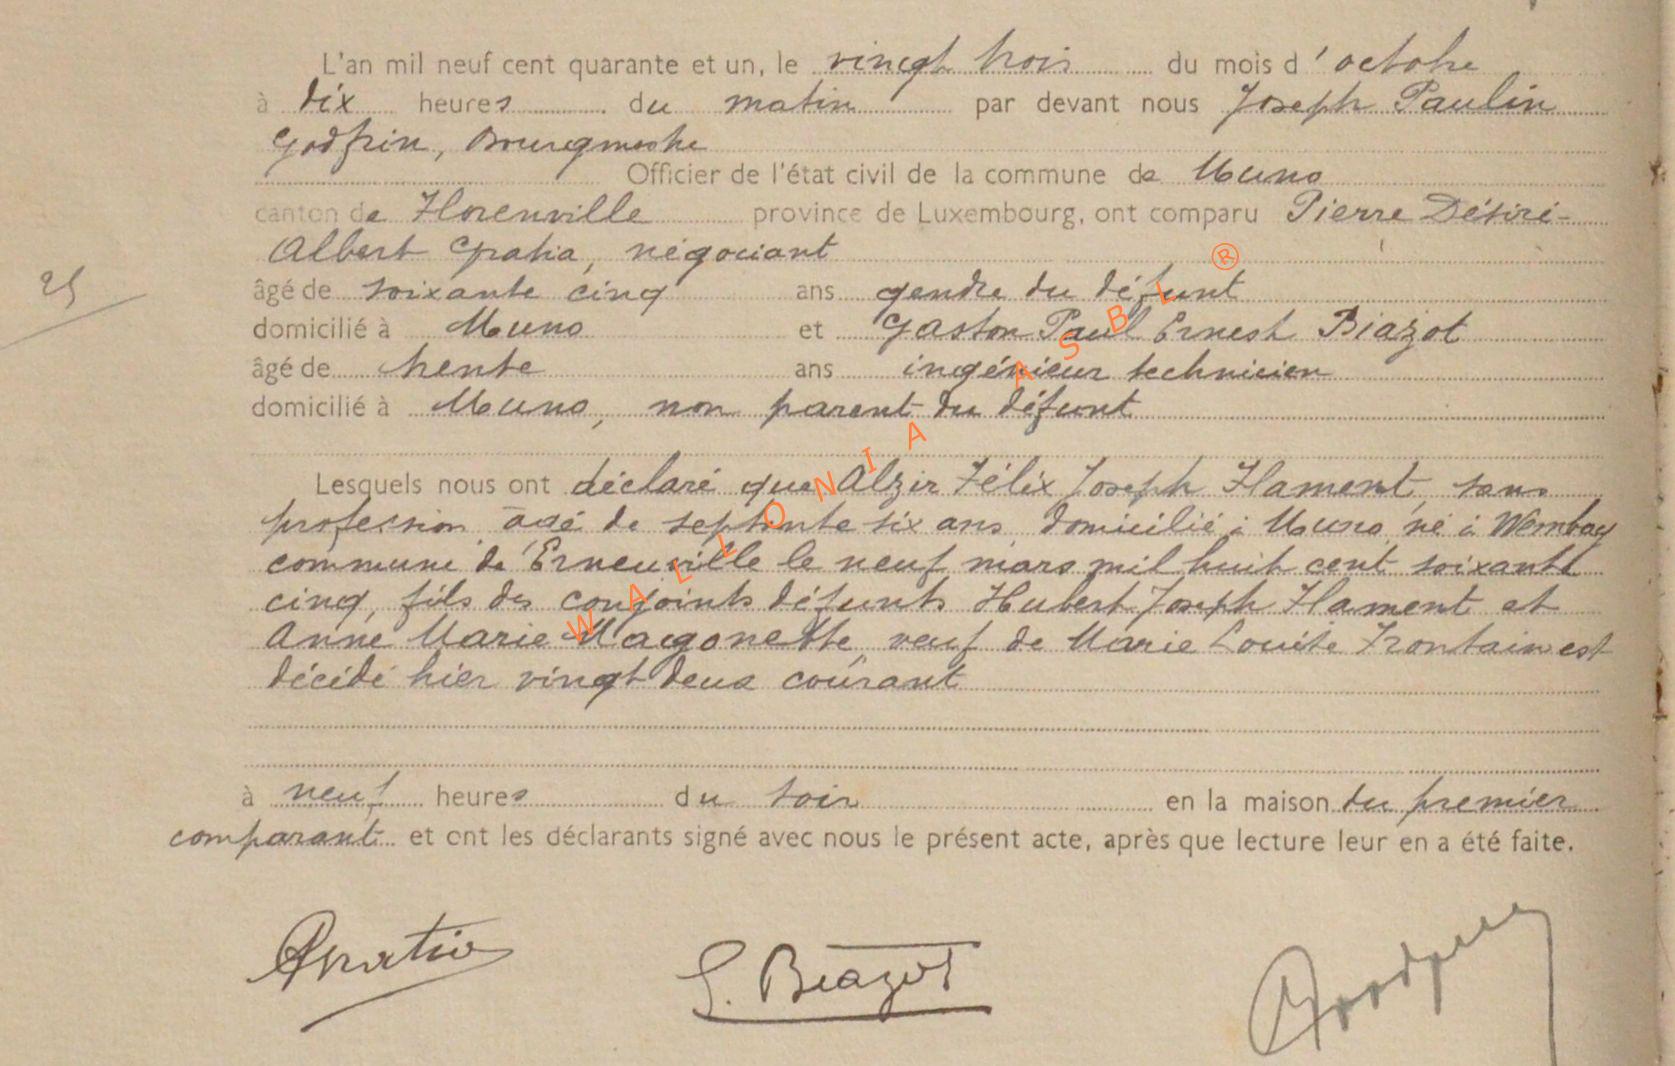 L'an mil neuf cent quarante et un, le vingt trois du mois d'octobre
à dix heures du matin par devant nous Joseph Paulin
Godfrin, Bourgmestre
Officier de l'état civil de la commune de Muno
canton de Florenville province de Luxembourg, ont comparu Pierre Désiré-
Albert Gratia, négociant
25
âgé de soixante cinq ans gendre du défunt
domicilié à Muno et Gaston Paul Ernest Biazot
âgé de trente ans ingénieur technicien
domicilié à Muno, non parent du défunt
Lesquels nous ont déclaré que Alzir Félix Joseph Flament, sans
profession âgé de septante six ans domicilié à Muno né à Wembay
commune d'Erneuville le neuf mars mil huit cent soixante
cinq, fils des conjoints défunts Hubert Joseph Flament et
Anne Marie Magonette, veuf de Marie Louise Frontain est
décédé hier vingt deux courant
à neuf heures du soir en la maison du premier
comparant et ont les déclarants signé avec nous le présent acte, après que lecture leur en a été faite.
Gratia
G. Biazot
WALLONIA ASBL ®